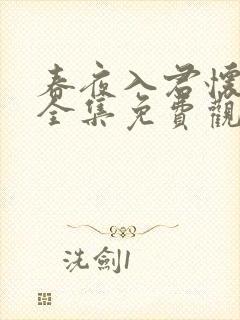 春夜入君懷
全集免費觀
洗劍1